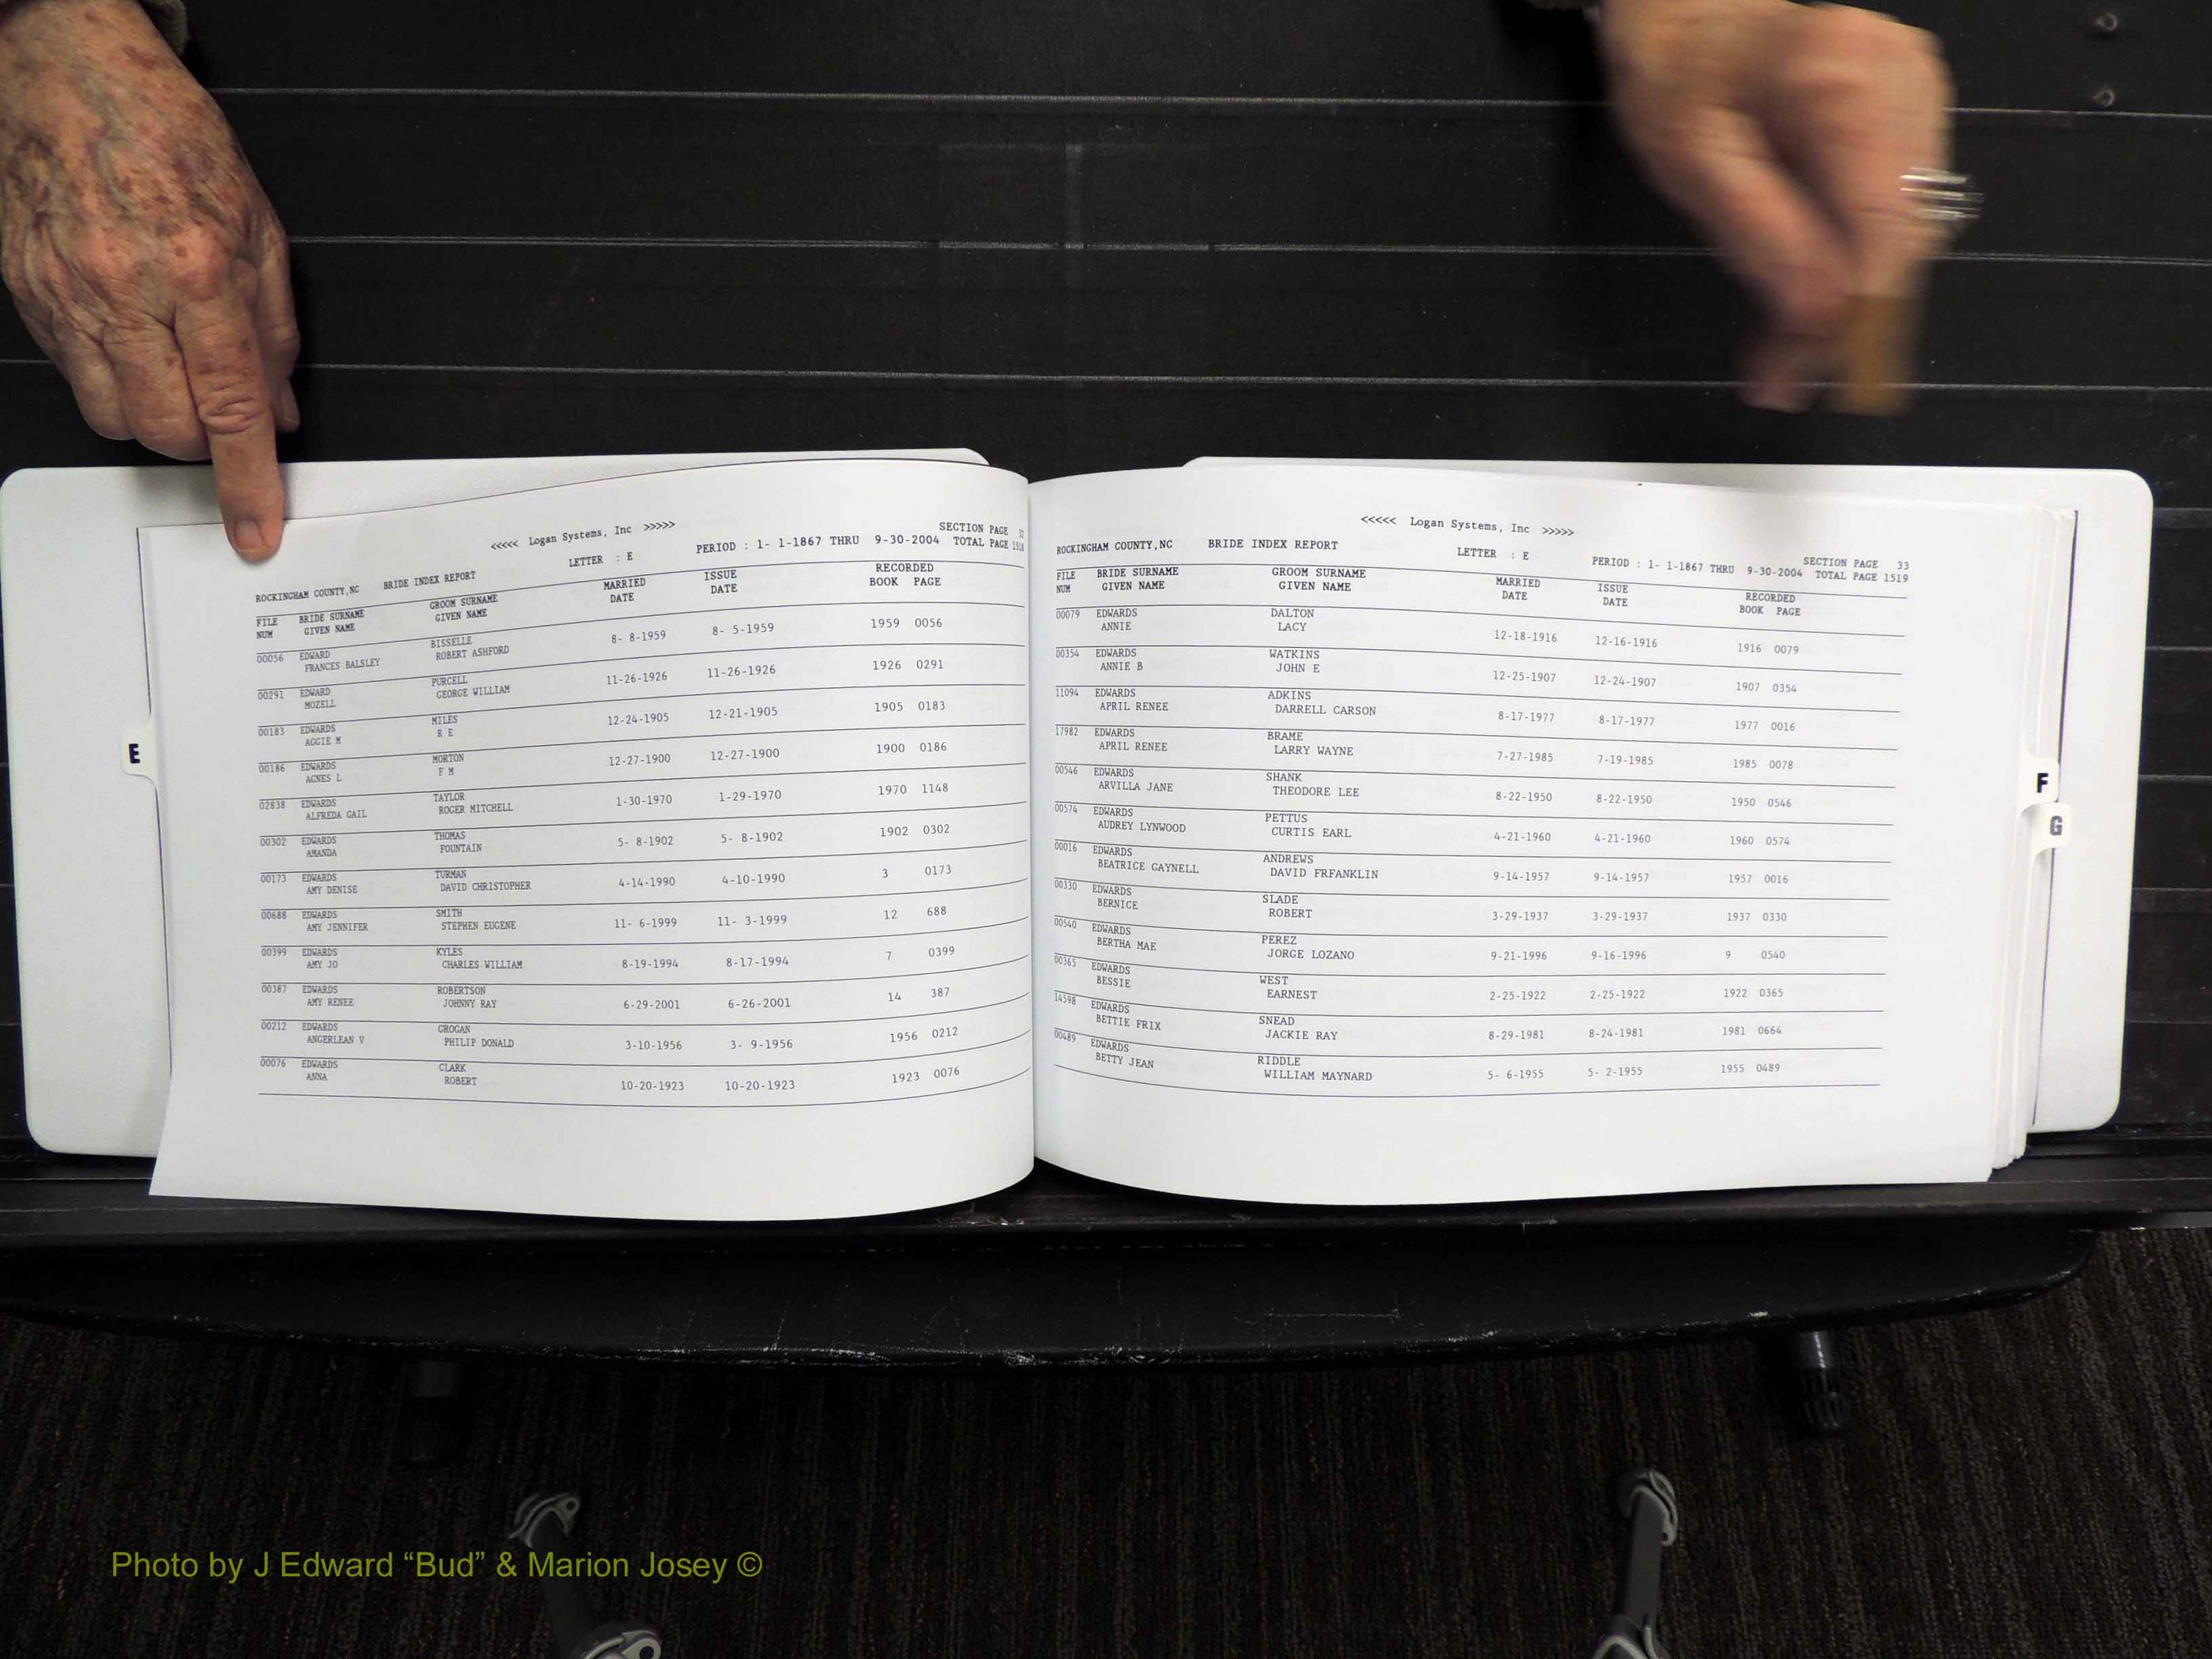 <<<<< Logan Systems, Inc >>>>>
SECTION PAGE
ROCKINGHAM COUNTY,NC BRIDE INDEX REPORT LETTER : E PERIOD : 1- 1-1867 THRU 9-30-2004 TOTAL PAGE 1518
FILE BRIDE SURNAME GROOM SURNAME MARRIED ISSUE RECORDED
NUM GIVEN NAME GIVEN NAME DATE DATE BOOK PAGE
00056 EDWARD BISSELLE 8- 8-1959 8- 5-1959 1959 0056
FRANCES BALSLEY ROBERT ASHFORD
00291 EDWARD PURCELL 11-26-1926 11-26-1926 1926 0291
MOZELL GEORGE WILLIAM
00183 EDWARDS MILES 12-24-1905 12-21-1905 1905 0183
AGGIE M R E
00186 EDWARDS MORTON 12-27-1900 12-27-1900 1900 0186
AGNES L F M
02838 EDWARDS TAYLOR 1-30-1970 1-29-1970 1970 1148
ALFREDA GAIL ROGER MITCHELL
00302 EDWARDS THOMAS 5- 8-1902 5- 8-1902 1902 0302
AMANDA FOUNTAIN
00173 EDWARDS TURMAN 4-14-1990 4-10-1990 3 0173
AMY DENISE DAVID CHRISTOPHER
00688 EDWARDS SMITH 11- 6-1999 11- 3-1999 12 688
AMY JENNIFER STEPHEN EUGENE
00399 EDWARDS KYLES 8-19-1994 8-17-1994 7 0399
AMY JO CHARLES WILLIAM
00387 EDWARDS ROBERTSON 6-29-2001 6-26-2001 14 387
AMY RENEE JOHNNY RAY
00212 EDWARDS GROGAN 3-10-1956 3- 9-1956 1956 0212
ANGERLEAN V PHILIP DONALD
00076 EDWARDS CLARK 10-20-1923 10-20-1923 1923 0076
ANNA ROBERT
E
<<<<< Logan Systems, Inc >>>>>
SECTION PAGE 33
ROCKINGHAM COUNTY,NC BRIDE INDEX REPORT LETTER : E PERIOD : 1- 1-1867 THRU 9-30-2004 TOTAL PAGE 1519
FILE BRIDE SURNAME GROOM SURNAME MARRIED ISSUE RECORDED
NUM GIVEN NAME GIVEN NAME DATE DATE BOOK PAGE
00079 EDWARDS DALTON 12-18-1916 12-16-1916 1916 0079
ANNIE LACY
00354 EDWARDS WATKINS 12-25-1907 12-24-1907 1907 0354
ANNIE B JOHN E
11094 EDWARDS ADKINS 8-17-1977 8-17-1977 1977 0016
APRIL RENEE DARRELL CARSON
17982 EDWARDS BRAME 7-27-1985 7-19-1985 1985 0078
APRIL RENEE LARRY WAYNE
00546 EDWARDS SHANK 8-22-1950 8-22-1950 1950 0546
ARVILLA JANE THEODORE LEE
00574 EDWARDS PETTUS 4-21-1960 4-21-1960 1960 0574
AUDREY LYNWOOD CURTIS EARL
00016 EDWARDS ANDREWS 9-14-1957 9-14-1957 1957 0016
BEATRICE GAYNELL DAVID FRFANKLIN
00330 EDWARDS SLADE 3-29-1937 3-29-1937 1937 0330
BERNICE ROBERT
00540 EDWARDS PEREZ 9-21-1996 9-16-1996 9 0540
BERTHA MAE JORGE LOZANO
00365 EDWARDS WEST 2-25-1922 2-25-1922 1922 0365
BESSIE EARNEST
14598 EDWARDS SNEAD 8-29-1981 8-24-1981 1981 0664
BETTIE FRIX JACKIE RAY
00489 EDWARDS RIDDLE 5- 6-1955 5- 2-1955 1955 0489
BETTY JEAN WILLIAM MAYNARD
F
G
Photo by J Edward “Bud” & Marion Josey ©